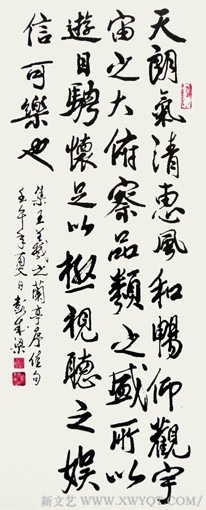 天朗氣清惠風和暢仰觀宇
宙之大俯察品類之盛所以
遊目騁懷足以極視聽之娛
信可樂也
集王羲之蘭亭序佳句
壬午年夏日彭
新文艺 WWW.XWYQT.COM/